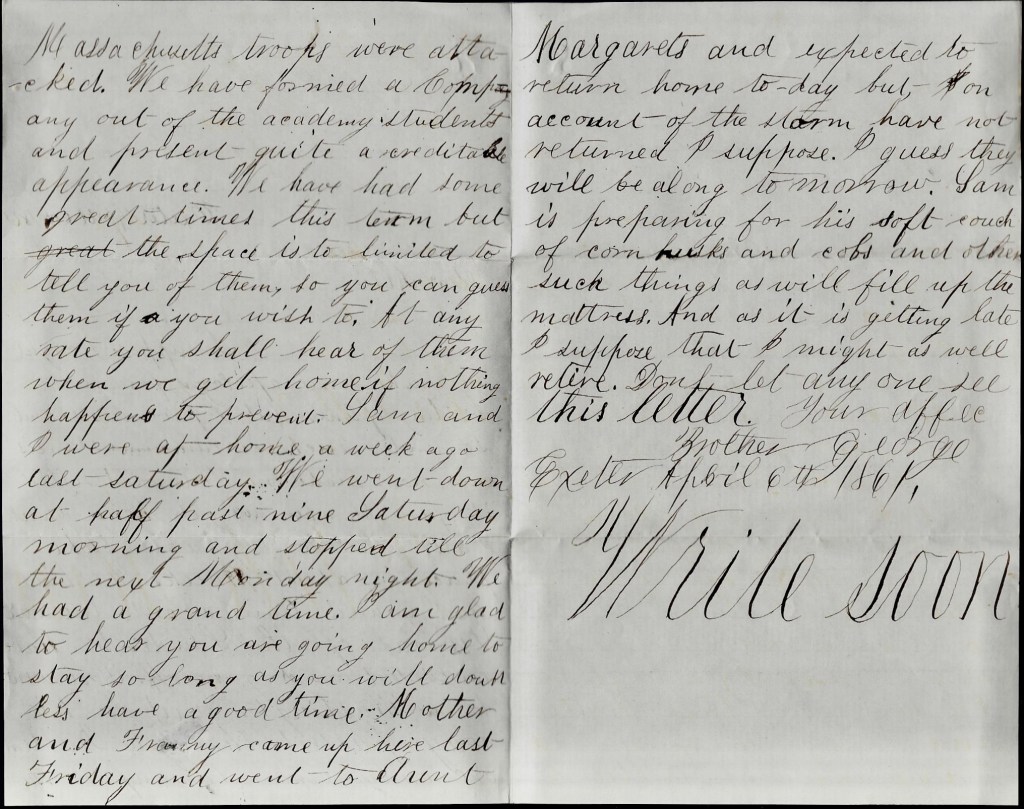 Massachusetts troops were atta-
-cked. We have formed a Comp-
any out of the academy students
and present quite a creditable
appearance. We have had some
great times this term but
great the space is to limited to
tell you of them, so you can guess
them if a you wish to. At any
rate you shall hear of them
when we get home if nothing
happens to prevent. Sam and
I were at home a week ago
last saturday. We went down
at half past nine Saturday
morning and stopped till
the next Monday night. We
had a grand time. I am glad
to hear you are going home to
stay so long as you will doubt
less have a good time. Mother
and Franny came up here last
Friday and went to Aunt
Margarets and expected to
return home to-day but, on
account of the storm have not
returned I suppose. I guess they
will be along to morrow. Sam
is preparing for his soft couch
of corn husks and cobs and other
such things as will fill up the
mattress. And as it is getting late
I suppose that I might as well
retire. Dont let any one see
this letter. Your affec
Brother George
Exeter April 6th 1861,
Write soon